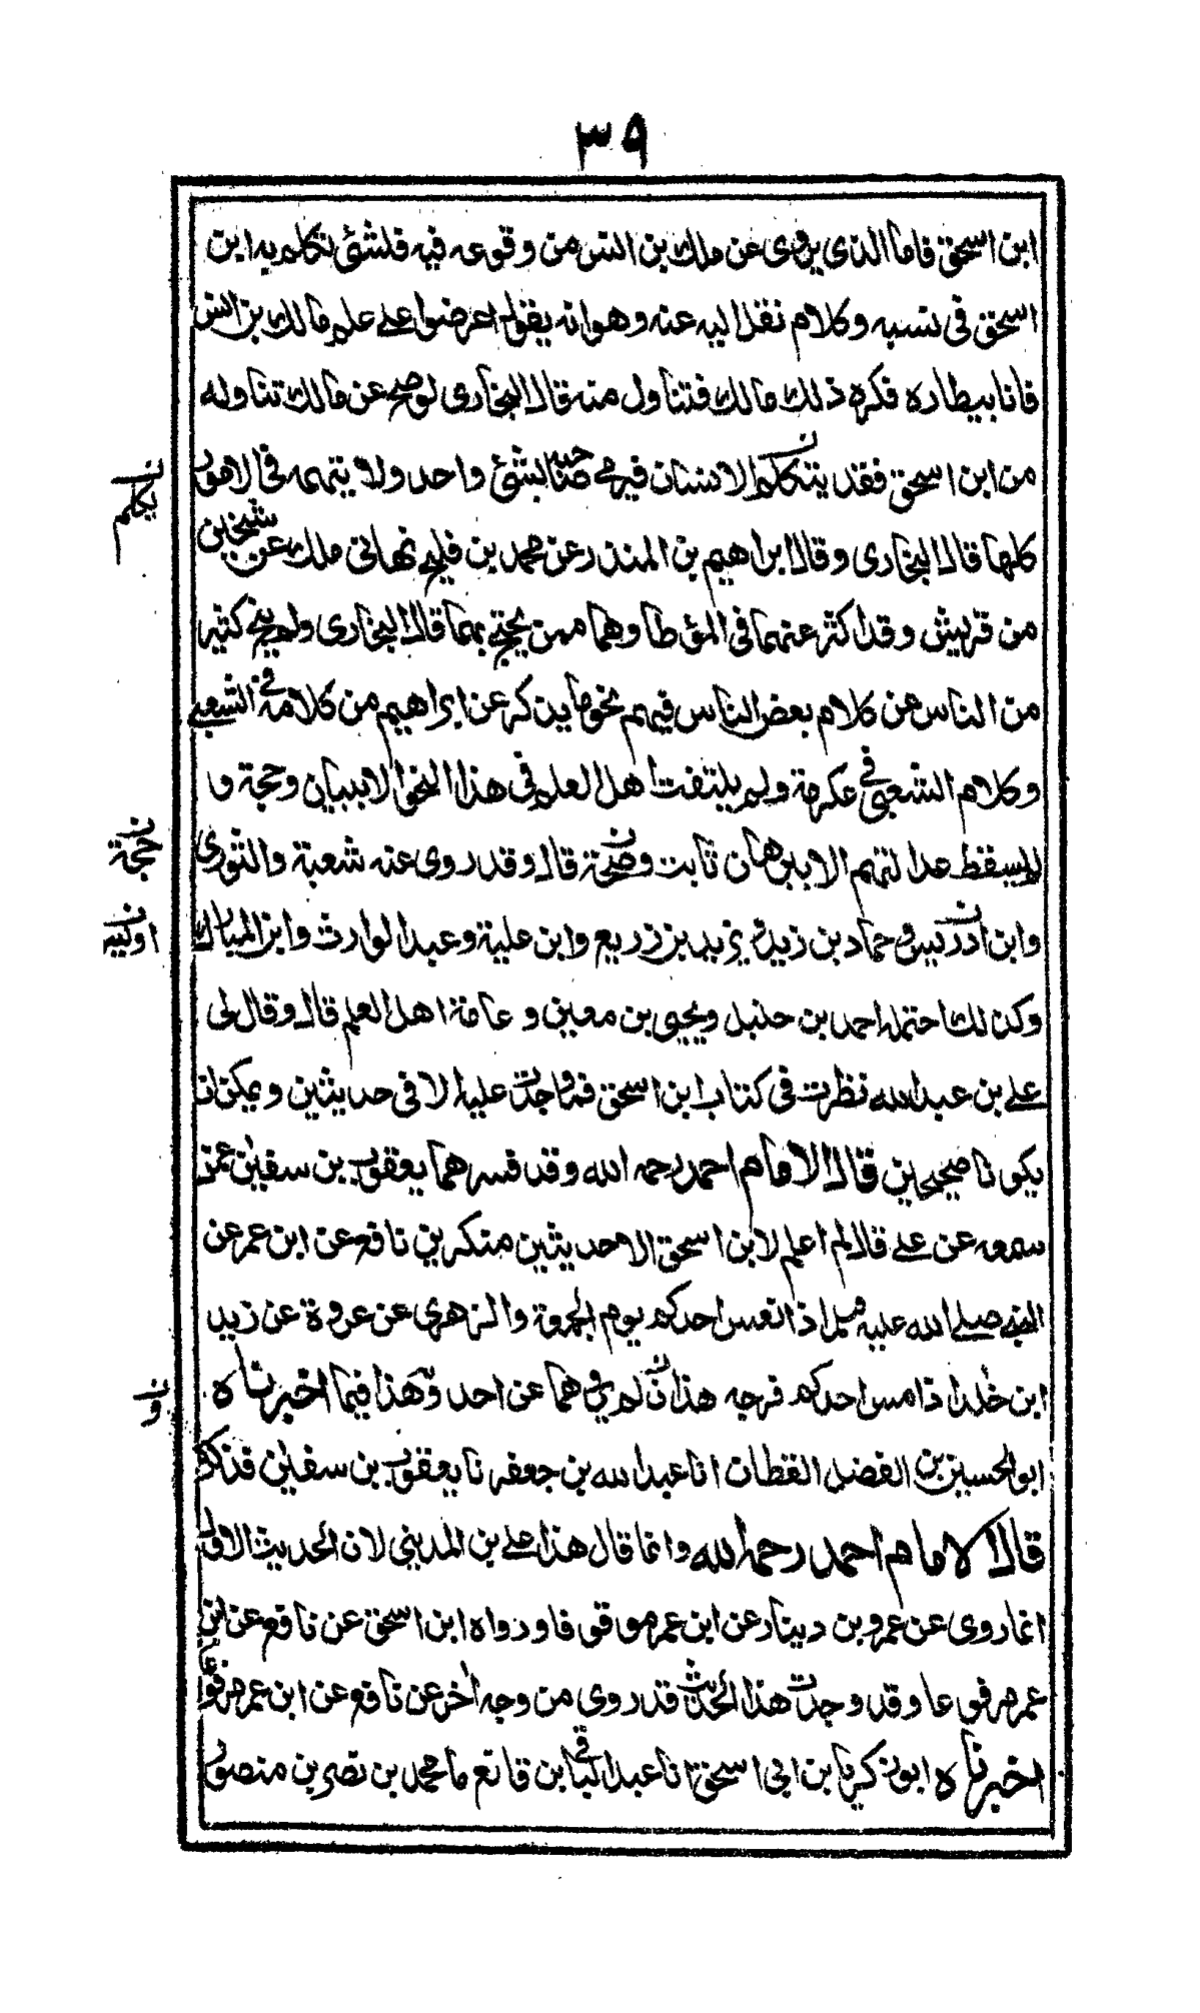 ٣٩
ابن اسحق فاما الذى يروى عن ملك بن انس من وقوعه فيه فلشئ تكلم به ابن
اسحق فى نسبه وكلام نقل اليه عنه وهو انه يقول اعرضوا على علم مالك بن انس
فانا بيطاره فكره ذلك مالك فتناول منه قال البخارى لو صح عن مالك تناوله
من ابن اسحق فقد يتكلم الانسان فيرمى صاحبه بشئ واحد ولا يتهمه فى الامور
يكلم
كلها قال البخارى وقال ابراهيم بن المنذر عن محمد بن فليح نهانى ملك عن شيخين
من قريش وقد اكثر عنهما فى المؤطا وهما ممن يحتج بهما قال البخارى ولم ينج كثير
من الناس من كلام بعض الناس فيهم نحو ما يذكر عن ابراهيم من كلامه فى الشعبى
وكلام الشعبى فى عكرمة ولم يلتفت اهل العلم فى هذا النحو الا ببيان وحجة و
لم يسقط عدالتهم الا ببرهان ثابت وصحة قال وقد روى عنه شعبة والثورى
حجة
وابن ادريس وحماد بن زيد ويزيد بن زريع وابن علية وعبد الوارث وابن المبارك
وكذلك احتمله احمد بن حنبل ويحيى بن معين و عامة اهل العلم قال وقال لى
على بن عبد الله نظرت فى كتاب ابن اسحق فما وجدت عليه الا فى حديثين ويمكن ان
يكونا صحيحين قال الامام احمد رحمه الله وقد فسرهما يعقوب بن سفين عمن
سمعه عن على قال لم اعلم لابن اسحق الا حديثين منكرين نافع عن ابن عمر عن
النبى صلى الله عليه وسلم اذا نعس احدكم يوم الجمعة والزهرى عن عروة عن زيد
ابن خلد اذا مس احدكم فرجه هذان لم يروهما عن احد وهذا فيما اخبرناه
و
ابو الحسين بن الفضل القطان انا عبد الله بن جعفر نا يعقوب بن سفين فذكره
قال الامام احمد رحمه الله وانما قال هذا على بن المدينى لان الحديث الاول
انما روى عن عمرو بن دينار عن ابن عمر موقوفا ورواه ابن اسحق عن نافع عن ابن
عمر مرفوعا وقد وجدت هذا الحديث قد روى من وجه اخر عن نافع عن ابن عمر مرفوعا
اخبرناه ابو زكريا بن ابى اسحق انا عبد الباقى ابن قانع ما محمد بن نصر بن منصور